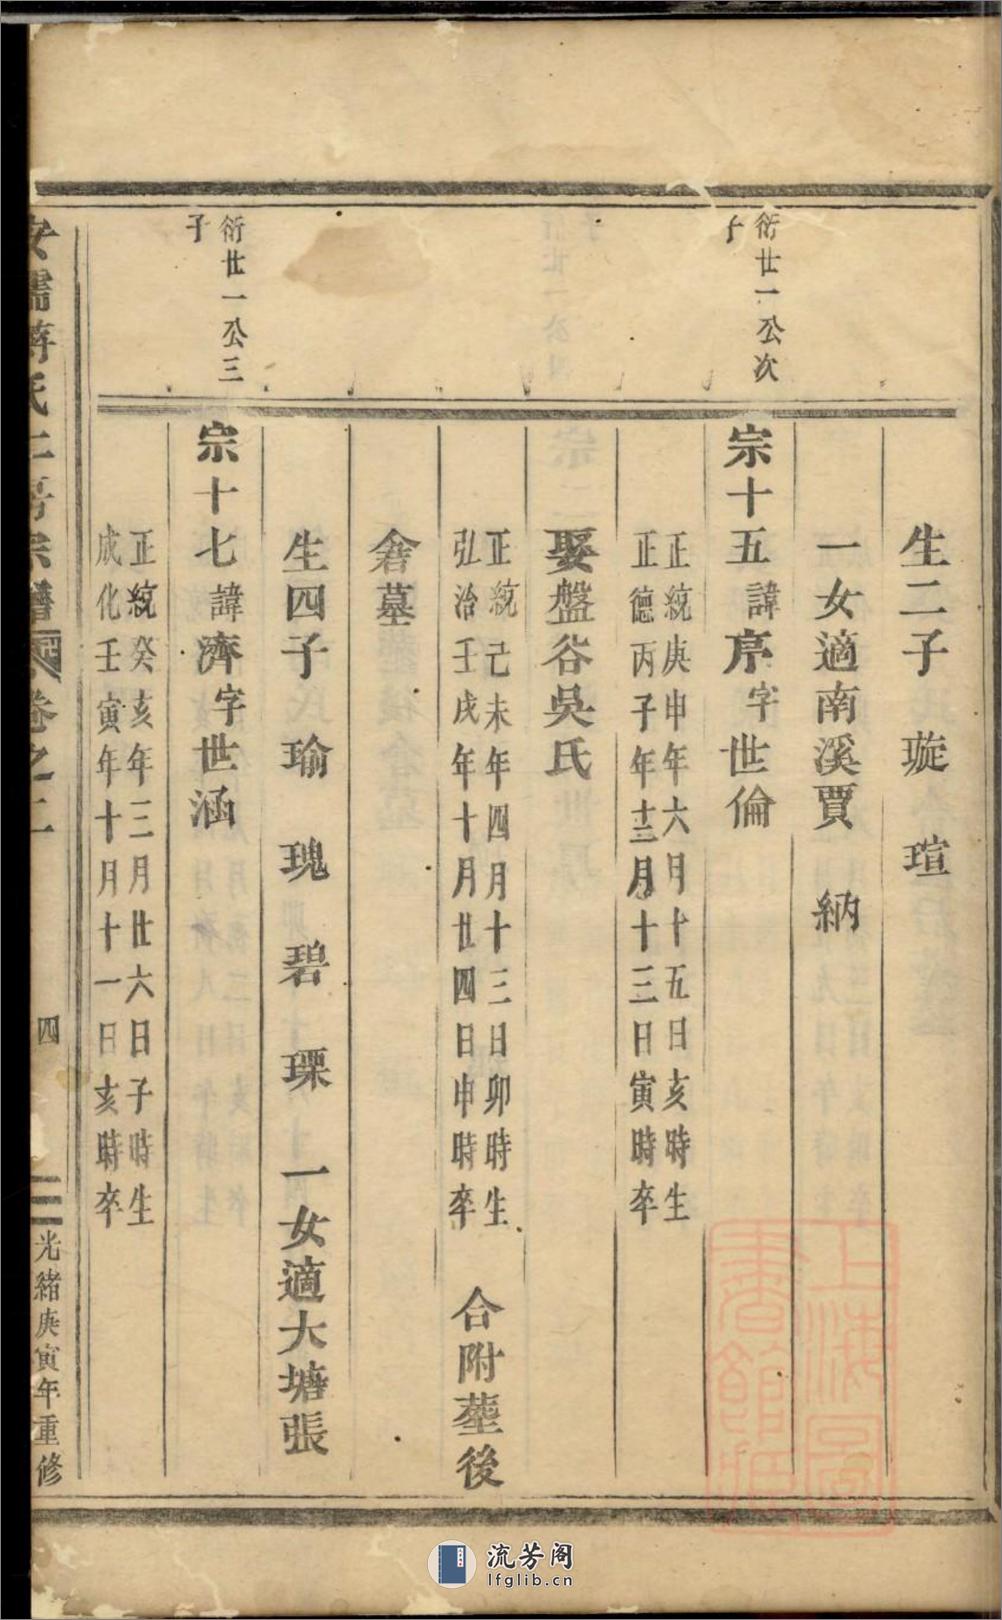 生二子 璇 瑄
一女適南溪賈 納
衍世一公次
子
宗十五諱序字世倫
正統庚申年六月十五日亥時生
正德丙子年十二月十三日寅時卒
娶盤谷吳氏
正統己未年四月十三日卯時生
弘治壬戌年十月廿四日申時卒
合附塟後
畬墓
生四子 瑜 瑰 碧 瑮 一女適大塘張
衍世一公三
子
宗十七諱濟字世涵
正統癸亥年三月廿六日子時生
成化壬寅年十月十一日亥時卒
氏 宗譜 卷之二
四
光緒庚寅年重修
上海圖書館藏
流芳阁
lfglib.cn